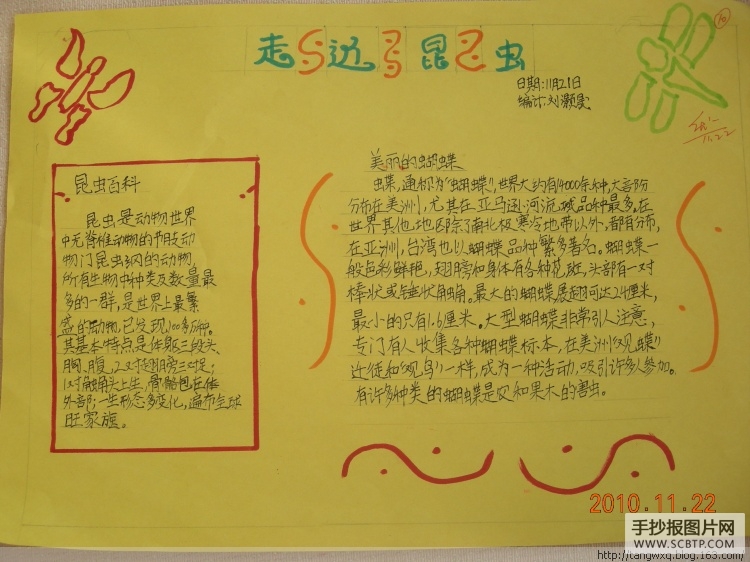 走近昆虫
日期:11月21日
编计:刘灏旻
昆虫百科
昆虫是动物世界
中无脊椎动物的节肢动
物门昆虫纲的动物,
所有生物中种类及数量最
多的一群,是世界上最繁
盛的动物,已发现100多万种。
其基本特点是体躯三段头、
胸、腹,2对翅膀三对足;
1对触角头上生,骨骼包在体
外部;一生形态多变化,遍布全球
旺家族。
美丽的蝴蝶
蝶,通称为"蝴蝶",世界大约有14000余种,大部份
分布在美洲,尤其在亚马逊河流域品种最多,在
世界其他地区除了南北极寒冷地带以外,都有分布,
在亚洲,台湾也以蝴蝶品种繁多著名。蝴蝶一
般色彩鲜艳,翅膀和身体有各种花斑,头部有一对
棒状或锤状触角。最大的蝴蝶展翅可达24厘米,
最小的只有1.6厘米。大型蝴蝶非常引人注意,
专门有人收集各种蝴蝶标本,在美洲"观蝶"
迁徙和"观鸟"一样,成为一种活动,吸引许多人参加。
有许多种类的蝴蝶是农和果木的害虫。
11.22
2010.11.22
手抄报图片网
WWW.SCBTP.COM
http://tangwxq.blog.163.com/